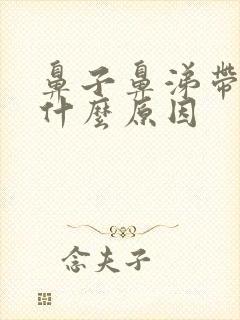 鼻子鼻涕帶
什麼原因
念夫子